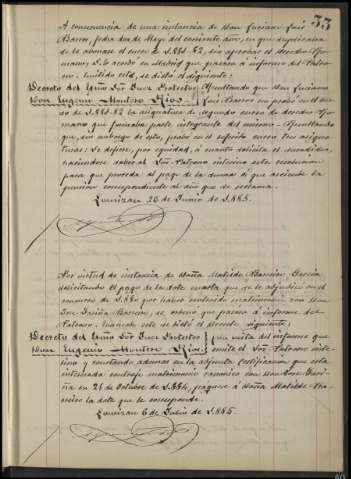 33
A consecuencia de una instancia de Don Luciano Luis
Barros, fecha de Mayo del corriente año, en que suplicaba
se le abonase el curso de 1.881-82, sin aprobar el derecho Ro-
mano, S. E. acordó en Madrid que pasara á informe del Patro-
no. Emitido este, se dictó el siguiente:
Decreto del Exmo Sor Juez Protector Resultando que Don Luciano
Don Eugenio Montero Rios. Luis Barros no probó en el cur-
so de 1.881-82 la asignatura de segundo curso de derecho Ro-
mano que formaba parte integrante del mismo = Resultando
que, sin embargo de esto, probó en el referido curso tres asigna-
turas: Se defiere, por equidad, á cuanto solicita el
haciéndose saber al Sor Patrono interino esta resolucion
para que proceda al pago de la suma á que asciende la
pension correspondiente al año que se reclama.
Lourizan 26 de Junio de 1.885.
Por virtud de instancia de Doña Matilde García,
solicitando el pago de la dote cuarta que se le adjudicó en el
concurso de 1.880 por haber contraido matrimonio con Don
José, se ordenó que pasara á informe del
Patrono. Evacuado este se dictó el decreto siguiente:
Decreto del Exmo Sor Juez Protector En vista del informe que
Don Eugenio Montero Rios. emite el Sor Patrono inte-
rino y constando además en la adjunta certificacion que esta
interesada contrajo matrimonio canónico con Don José
en 24 de Octubre de 1.884, páguese á Doña Matilde
la dote que le corresponde.
Lourizan 6 de Julio de 1.885.